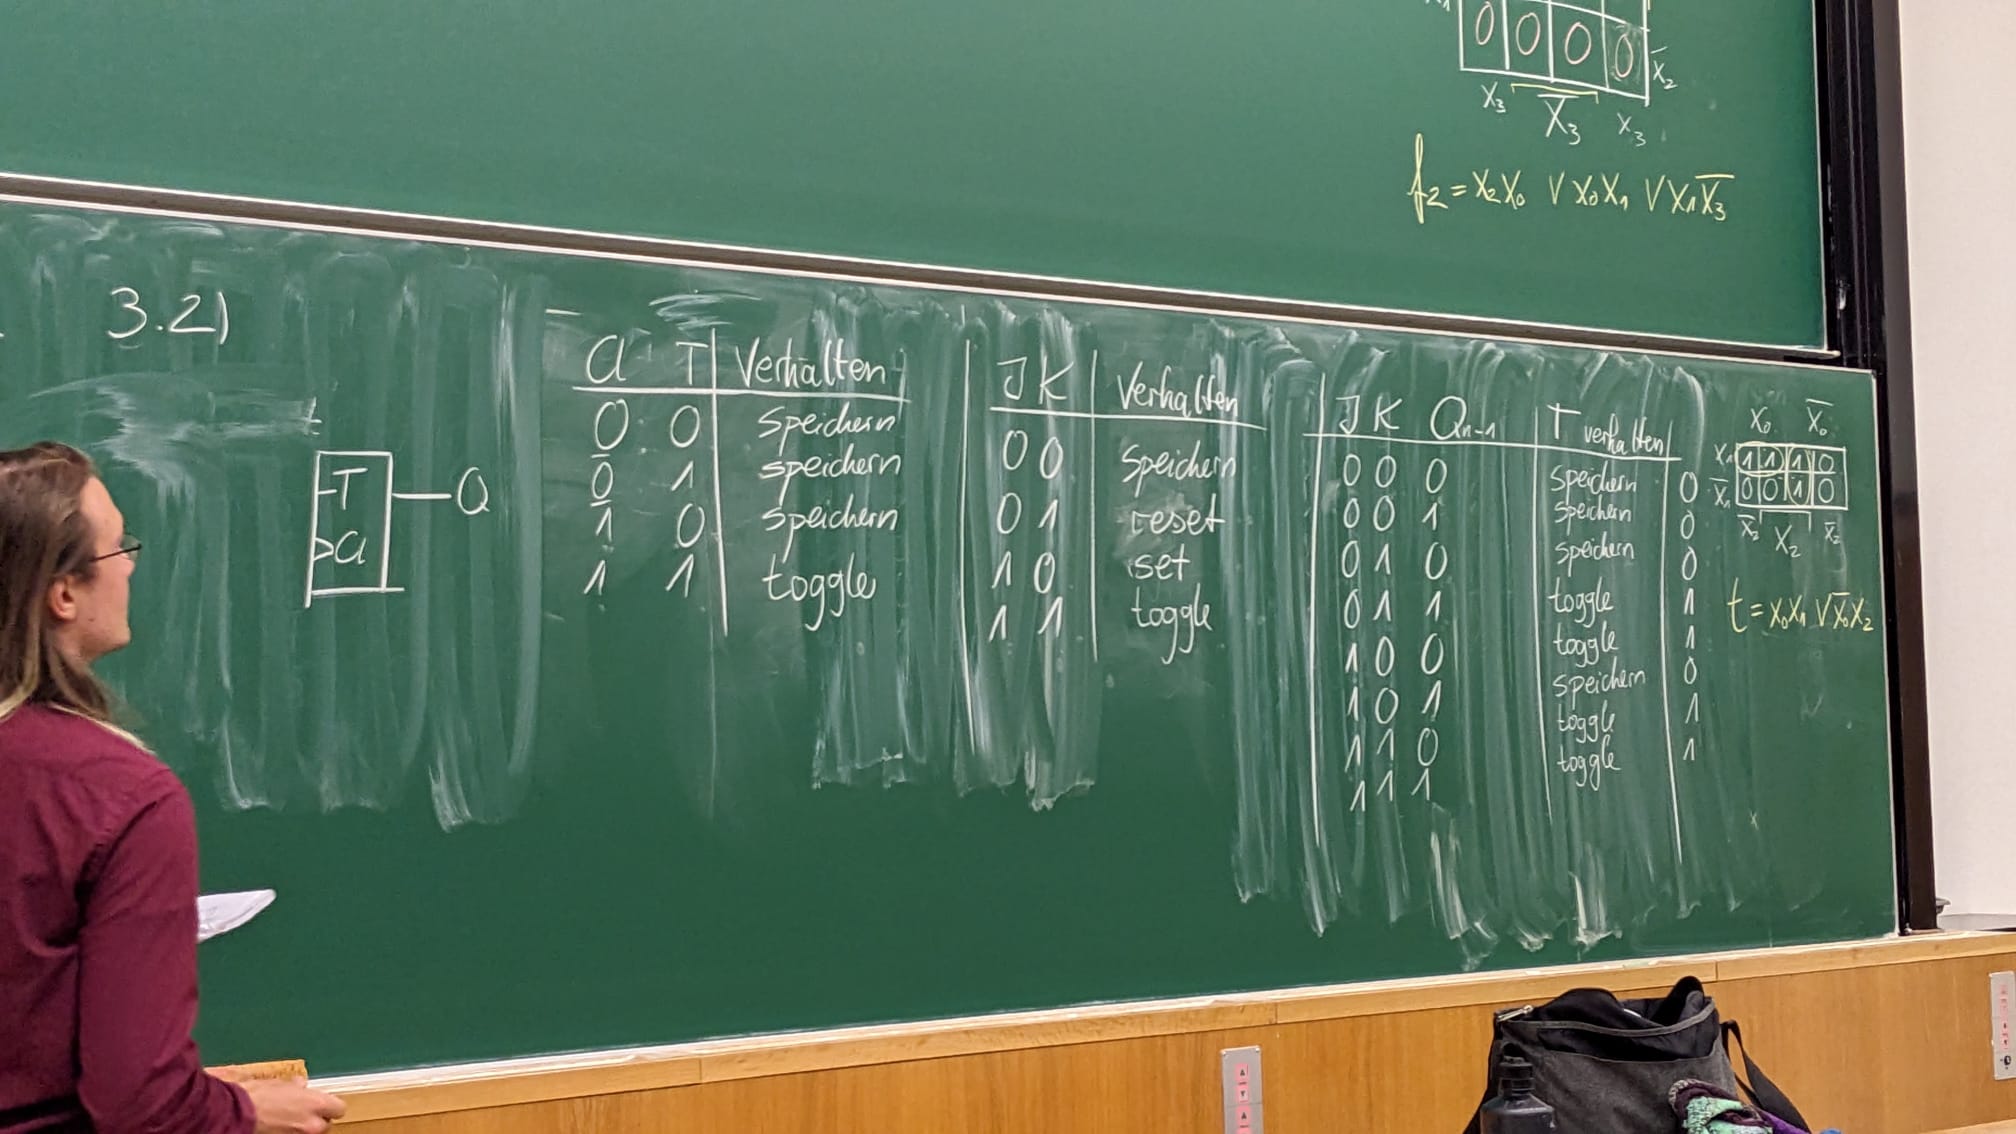 0 0 0 0 x̄₂
x₃ x̄₃ x₃
f₂ = x₂x₀ ∨ x₀x₁ ∨ x₁x̄₃
3.2)
T
Cl
Q
Cl T Verhalten
0 0 speichern
0 1 speichern
1 0 speichern
1 1 toggle
J K Verhalten
0 0 speichern
0 1 reset
1 0 set
1 1 toggle
J K Qn-1 T verhalten
0 0 0 speichern 0
0 0 1 speichern 0
0 1 0 speichern 0
0 1 1 toggle 1
1 0 0 toggle 1
1 0 1 speichern 0
1 1 0 toggle 1
1 1 1 toggle 1
x₀ x̄₀
x₁ 1 1 1 0
x̄₁ 0 0 1 0
x̄₂ x₂ x̄₂
t = x₀x₁ ∨ x̄₀x₂